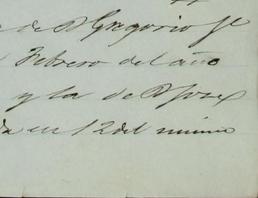 de Dn Gregorio
Febrero del año
y la de Dn Jose
en 12 del mismo